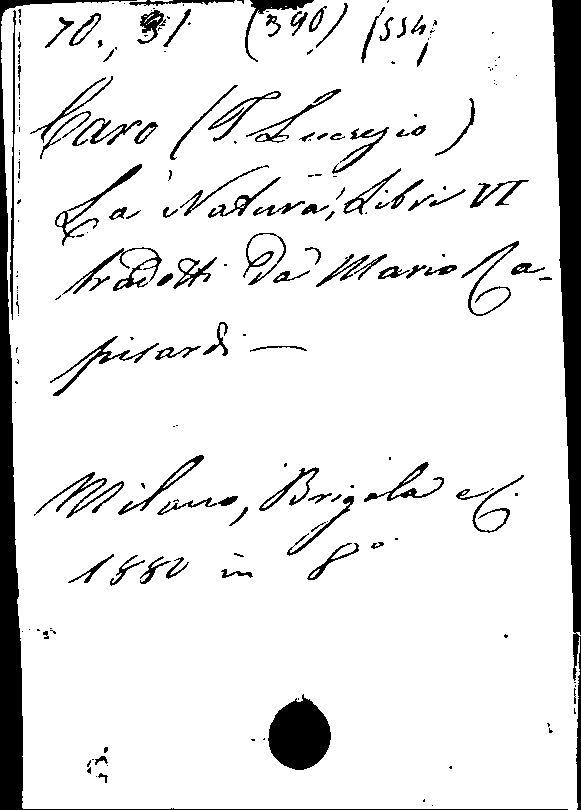 70., 31 (390) (554)
Caro (T. Lucrezio)
La Natura, Libri VI
tradotti da Mario Ra-
pisardi —
Milano, Brigola e C.
1880 in 8°